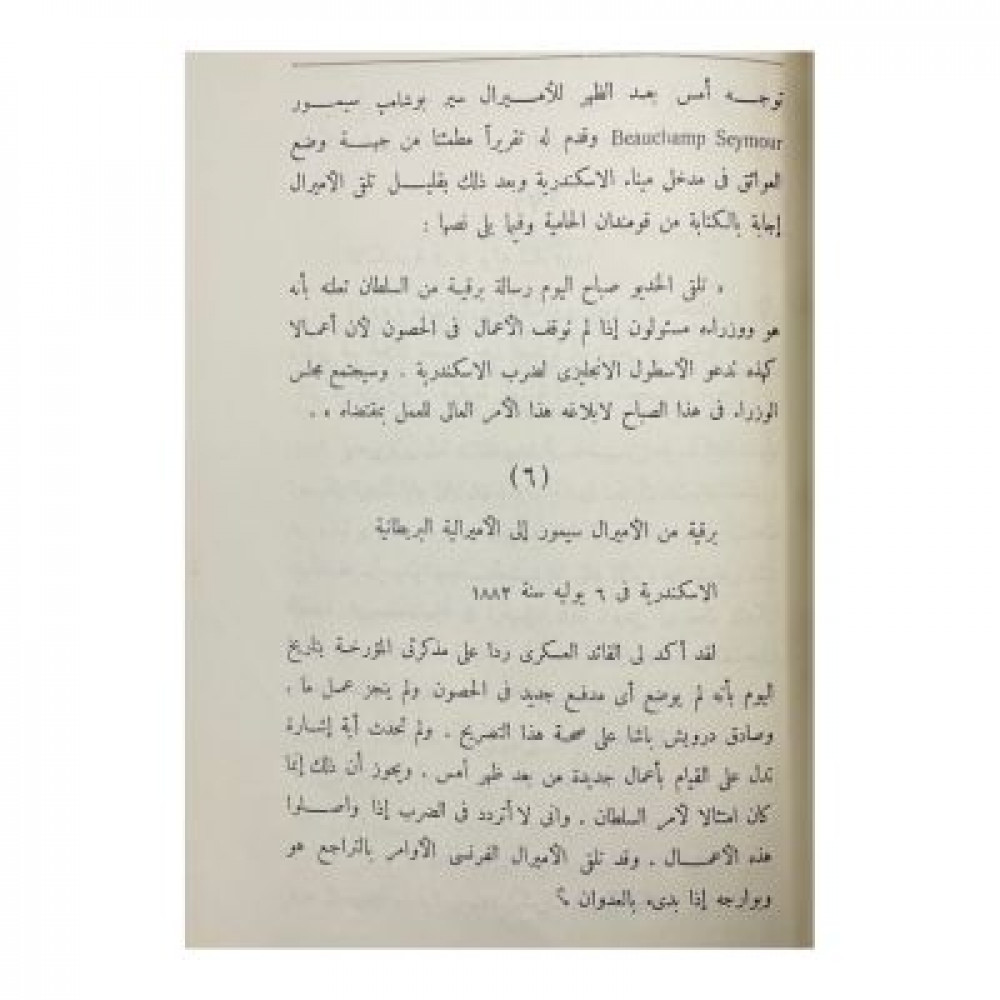 توجـــه أمس بعـد الظهر للأمـيـرال سير بوشامب سيمـور
Beauchamp Seymour وقدم له تقريراً مطمئنا من جهـة وضع
العوائق فى مدخل ميناء الاسكندرية وبعد ذلك بقليـل تلقى الأميرال
إجابة بالكتابة من قومندان الحامية وفيما يلى نصها :
« تلقى الخديو صباح اليوم رسالة برقية من السلطان تعلنه بأنه
هو ووزراءه مسئولون إذا لم توقف الأعمال فى الحصون لأن أعمالا
كهذه تدعو الأسطول الانجليزى لضرب الاسكندرية . وسيجتمع مجلس
الوزراء فى هذا الصباح لابلاغه هذا الأمر العالى للعمل بمقتضاه » .
(٦)
برقية من الأميرال سيمور إلى الأميرالية البريطانية
الاسكندرية فى ٦ يوليه سنة ١٨٨٢
لقد أكد لى القائد العسكرى ردا على مذكرتى المؤرخة بتاريخ
اليوم بأنه لم يوضع أى مدفع جديد فى الحصون ولم ينجز عمـل ما ،
وصادق درويش باشا على صحة هذا التصريح . ولم تحدث أية إشارة
تدل على القيام بأعمال جديدة من بعد ظهر أمس . ويجوز أن ذلك إنما
كان امتثالا لأمر السلطان . وانى لا أتردد فى الضرب إذا واصـلوا
هذه الأعمـال . وقد تلقى الأميرال الفرنسى الأوامر بالتراجع هو
وبوارجه إذا بدىء بالعدوان م؟